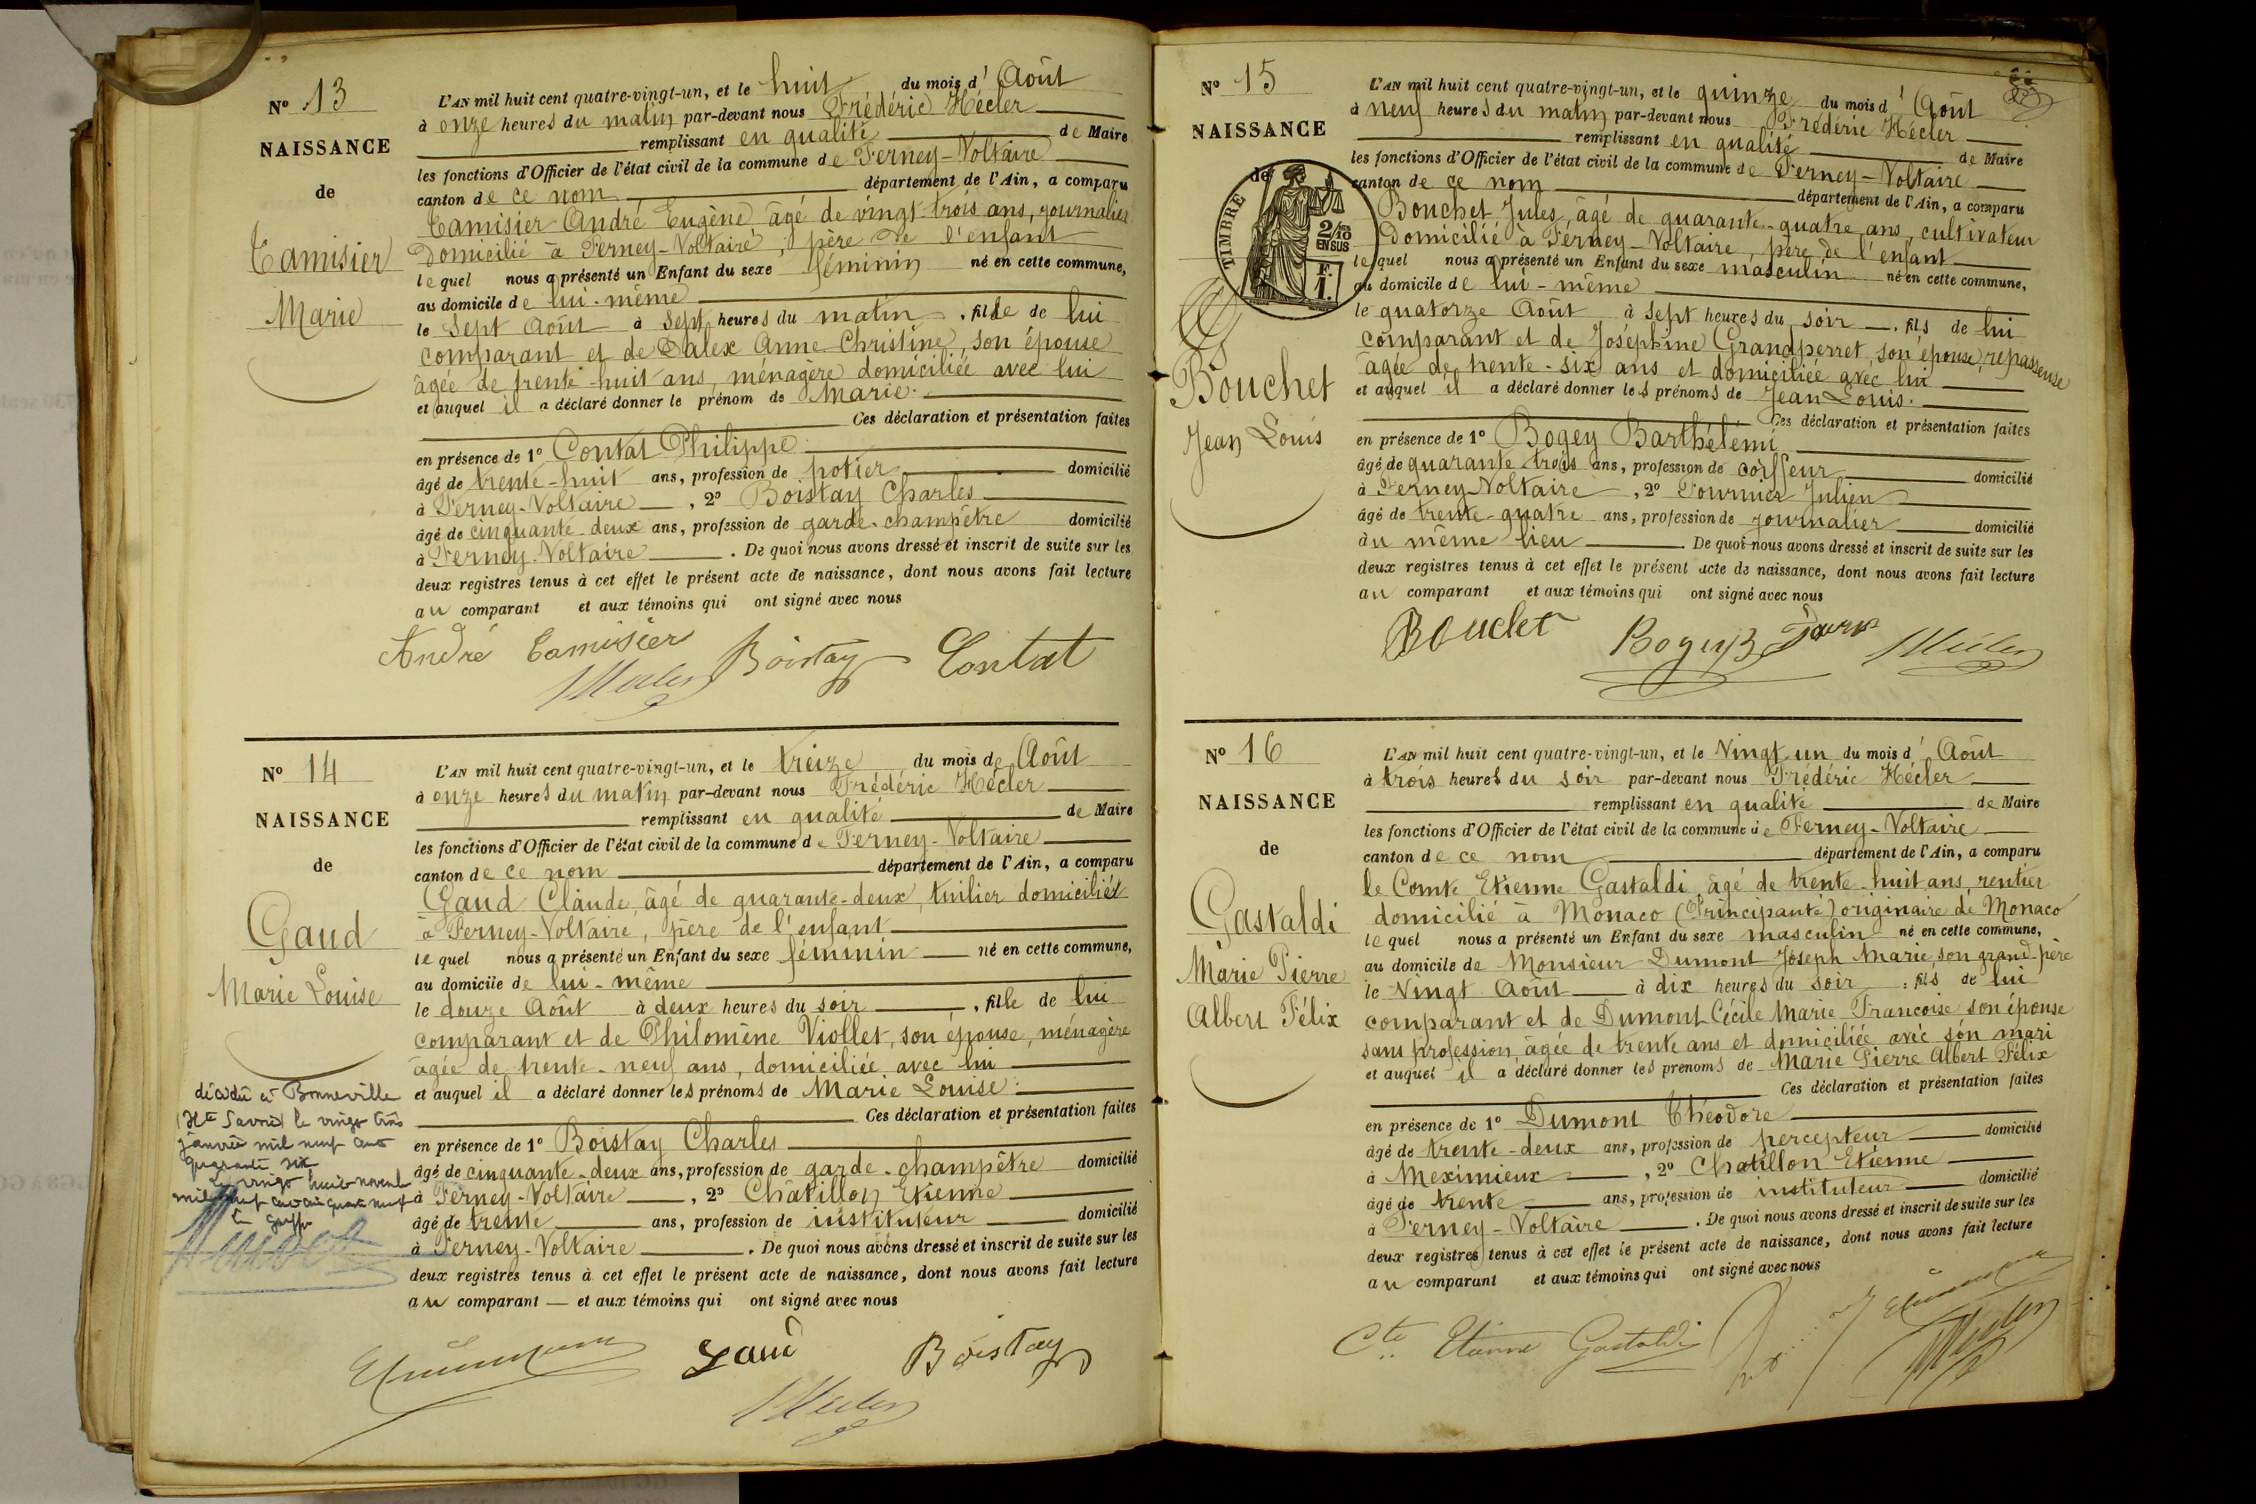 N° 13
NAISSANCE
de
Camisier
Marie
L'AN mil huit cent quatre-vingt-un, et le huit du mois d' Août
à onze heures du matin par-devant nous Frédéric Hécler
remplissant en qualité de Maire
les fonctions d'Officier de l'état civil de la commune de Ferney-Voltaire
canton de ce nom département de l'Ain, a comparu
Camisier André Eugène âgé de vingt-trois ans, journalier
domicilié à Ferney-Voltaire, père de l'enfant
lequel nous a présenté un Enfant du sexe féminin né en cette commune,
au domicile de lui-même
le sept Août à sept heures du matin, fille de lui
comparant et de Dalex Anne Christine, son épouse
âgée de trente-huit ans, ménagère domiciliée avec lui
et auquel il a déclaré donner le prénom de Marie.
Ces déclaration et présentation faites
en présence de 1° Contat Philippe
âgé de trente-huit ans, profession de potier domicilié
à Ferney-Voltaire, 2° Boistay Charles
âgé de cinquante-deux ans, profession de garde-champêtre domicilié
à Ferney-Voltaire. De quoi nous avons dressé et inscrit de suite sur les
deux registres tenus à cet effet le présent acte de naissance, dont nous avons fait lecture
au comparant et aux témoins qui ont signé avec nous
André Camisier Boistay Contat
Hécler
N° 14
NAISSANCE
de
Gaud
Marie Louise
décédée à Bonneville
(Hte Savoie) le vingt trois
janvier mil neuf cent
quarante six
L'AN mil huit cent quatre-vingt-un, et le treize du mois de Août
à onze heures du matin par-devant nous Frédéric Hécler
remplissant en qualité de Maire
les fonctions d'Officier de l'état civil de la commune de Ferney-Voltaire
canton de ce nom département de l'Ain, a comparu
Gaud Claude, âgé de quarante-deux, tuilier domicilié
à Ferney-Voltaire, père de l'enfant
lequel nous a présenté un Enfant du sexe féminin né en cette commune,
au domicile de lui-même
le douze Août à deux heures du soir, fille de lui
comparant et de Philomène Viollet, son épouse, ménagère
âgée de trente-neuf ans, domiciliée avec lui
et auquel il a déclaré donner les prénoms de Marie Louise.
Ces déclaration et présentation faites
en présence de 1° Boistay Charles
âgé de cinquante-deux ans, profession de garde-champêtre domicilié
à Ferney-Voltaire, 2° Châtillon Etienne
âgé de trente ans, profession de instituteur domicilié
à Ferney-Voltaire. De quoi nous avons dressé et inscrit de suite sur les
deux registres tenus à cet effet le présent acte de naissance, dont nous avons fait lecture
au comparant — et aux témoins qui ont signé avec nous
Gaud Boistay
Hécler
N° 15
NAISSANCE
de
TIMBRE
2/10
EN SUS
F.
1.
Bouchet
Jean Louis
L'AN mil huit cent quatre-vingt-un, et le quinze du mois d' Août
à neuf heures du matin par-devant nous Frédéric Hécler
remplissant en qualité de Maire
les fonctions d'Officier de l'état civil de la commune de Ferney-Voltaire
canton de ce nom département de l'Ain, a comparu
Bouchet Jules, âgé de quarante-quatre ans, cultivateur
domicilié à Ferney-Voltaire, père de l'enfant
lequel nous a présenté un Enfant du sexe masculin né en cette commune,
au domicile de lui-même
le quatorze Août à sept heures du soir, fils de lui
comparant et de Joséphine Grandperret, son épouse, repasseuse
âgée de trente-six ans et domiciliée avec lui
et auquel il a déclaré donner les prénoms de Jean Louis.
Ces déclaration et présentation faites
en présence de 1° Bogey Barthélémi
âgé de quarante trois ans, profession de coiffeur domicilié
à Ferney-Voltaire, 2° Fournier Julien
âgé de trente-quatre ans, profession de journalier domicilié
au même lieu. De quoi nous avons dressé et inscrit de suite sur les
deux registres tenus à cet effet le présent acte de naissance, dont nous avons fait lecture
au comparant et aux témoins qui ont signé avec nous
Bouchet Bogey B Hécler
N° 16
NAISSANCE
de
Gastaldi
Marie Pierre
Albert Félix
L'AN mil huit cent quatre-vingt-un, et le Vingt un du mois d' Août
à trois heures du soir par-devant nous Frédéric Hécler
remplissant en qualité de Maire
les fonctions d'Officier de l'état civil de la commune de Ferney-Voltaire
canton de ce nom département de l'Ain, a comparu
le Comte Etienne Gastaldi, âgé de trente-huit ans, rentier
domicilié à Monaco (Principauté) originaire de Monaco
lequel nous a présenté un Enfant du sexe masculin né en cette commune,
au domicile de Monsieur Dumont Joseph Marie, son grand-père
le Vingt Août à dix heures du soir, fils de lui
comparant et de Dumont Cécile Marie Francoise son épouse
sans profession, âgée de trente ans et domiciliée avec son mari
et auquel il a déclaré donner les prénoms de Marie Pierre Albert Félix
Ces déclaration et présentation faites
en présence de 1° Dumont Théodore
âgé de trente-deux ans, profession de percepteur domicilié
à Meximieux, 2° Chatillon Etienne
âgé de trente ans, profession de instituteur domicilié
à Ferney-Voltaire. De quoi nous avons dressé et inscrit de suite sur les
deux registres tenus à cet effet le présent acte de naissance, dont nous avons fait lecture
au comparant et aux témoins qui ont signé avec nous
Cte Etienne Gastaldi
Hécler